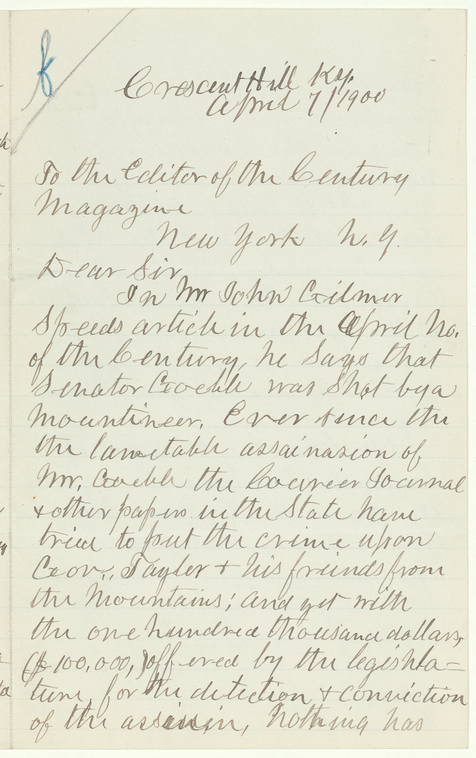 Crescent Hill Ky.
April 7/1900
To the Editor of the Century
Magazine
New York N. Y.
Dear Sir,
In Mr John Gilmer
Speeds article in the April No.
of the Century, he says that
Senator Goebble was shot by a
mountineer. Ever since the
the lametable assainasion of
Mr, Goebble the Courier Journal
& other papers in the State have
tried to put the crime upon
Gov., Taylor & his friends from
the Mountains; and yet with
the one hundred thousand dollars,
($100,000,) offered by the legishla=
ture, for the detection & conviction
of the assinin, nothing has